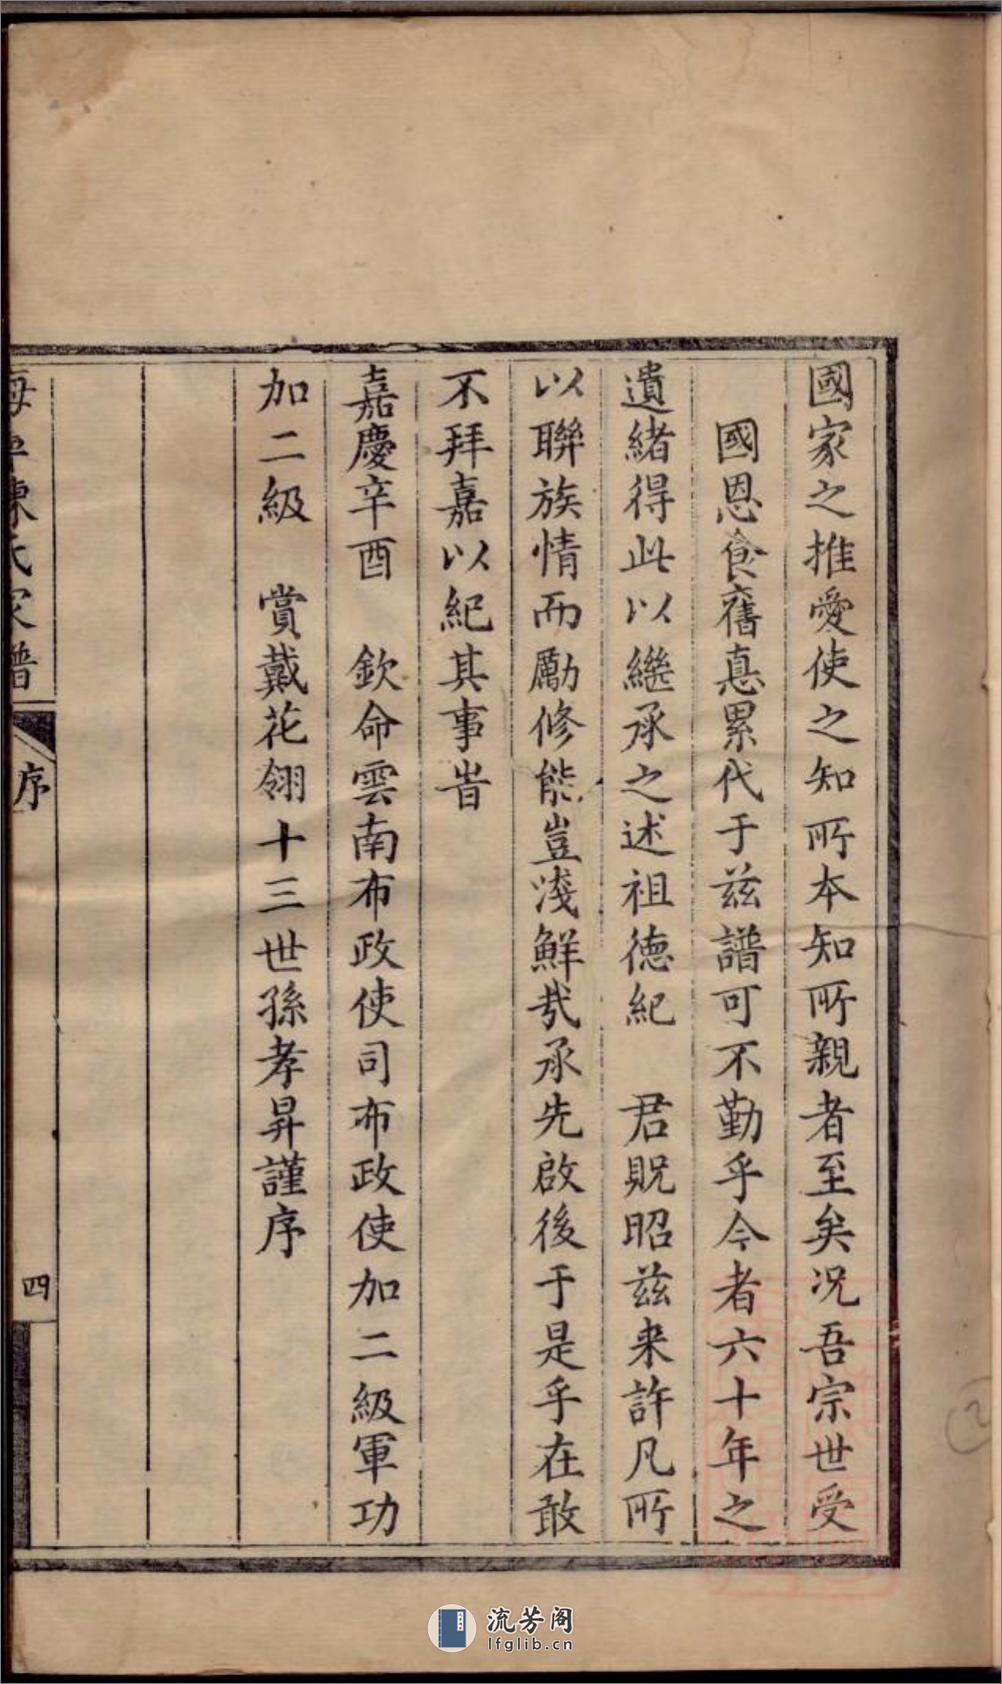 國家之推愛使之知所本知所親者至矣况吾宗世受
國恩食舊悳累代于兹譜可不勤乎今者六十年之
遺緒得此以繼承之述祖德紀　君貺昭兹来許凡所
以聯族情而勵修能豈淺鮮㢤承先啟後于是乎在敢
不拜嘉以紀其事旹
嘉慶辛酉　欽命雲南布政使司布政使加二級軍功
加二級　賞戴花翎十三世孫孝昇謹序
海寧陳氏家譜　序　四
流芳阁
lfglib.cn